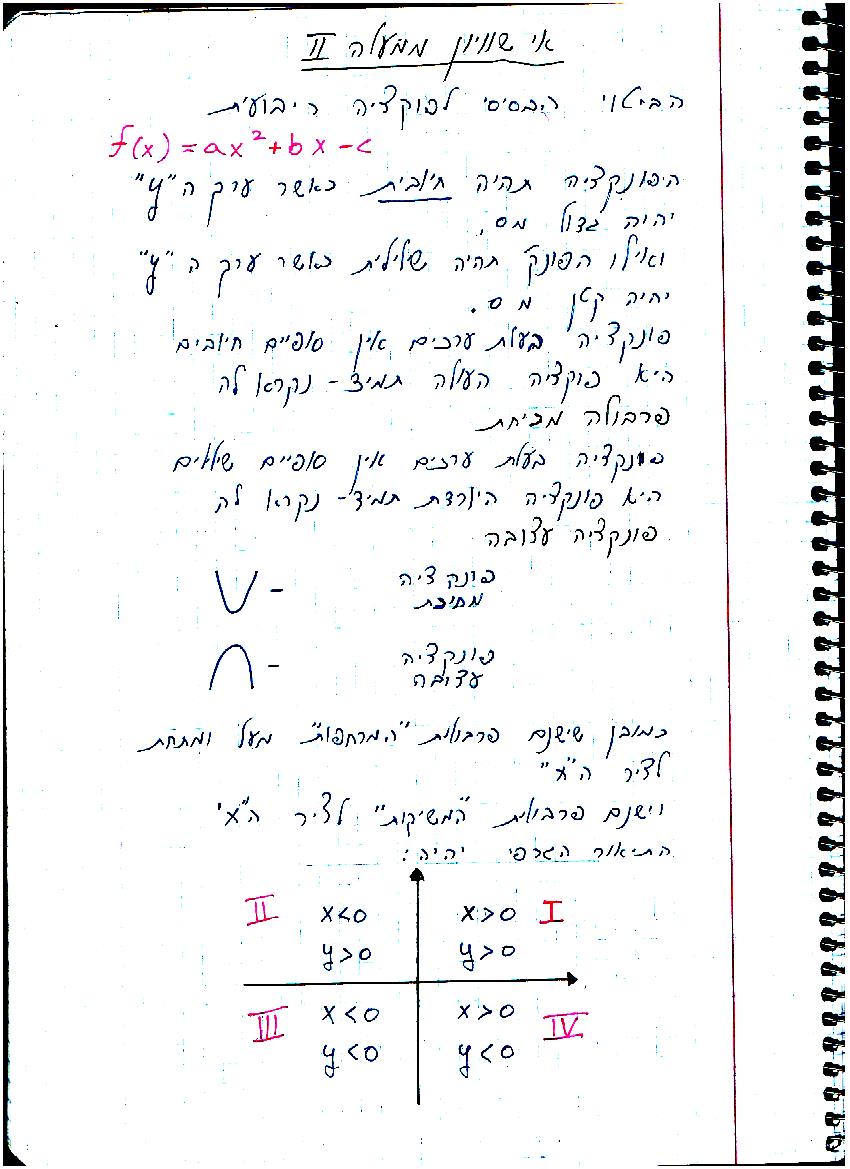 אי שוויון ממעלה II
הביטוי הבסיסי לפוקציה ריבועית
f(x) = ax²+bx-c
הפונקציה תהיה חיובית כאשר ערך ה"y"
יהיה גדול מ0.
ואילו הפונק' תהיה שלילית כאשר ערך ה "y"
יהיה קטן מ 0.
פונקציה בעלת ערכים אין סופיים חיובים
היא פוקציה העולה תמיד - נקרא לה
פרבולה מחייכת
פונקציה בעלת ערכים אין סופיים שלילים
היא פונקציה היורדת תמיד - נקרא לה
פונקציה עצובה
פונקציה
מחייכת
-
פונקציה
עצובה
-
כמובן שישנם פרבולות "המרחפות" מעל ומתחת
לציר ה"x"
וישנם פרבולות "המשיקות" לציר ה"x'
התיאור הגרפי יהיה:
II x<0 x>0 I
y>0 y>0
III x<0 x>0 IV
y<0 y<0